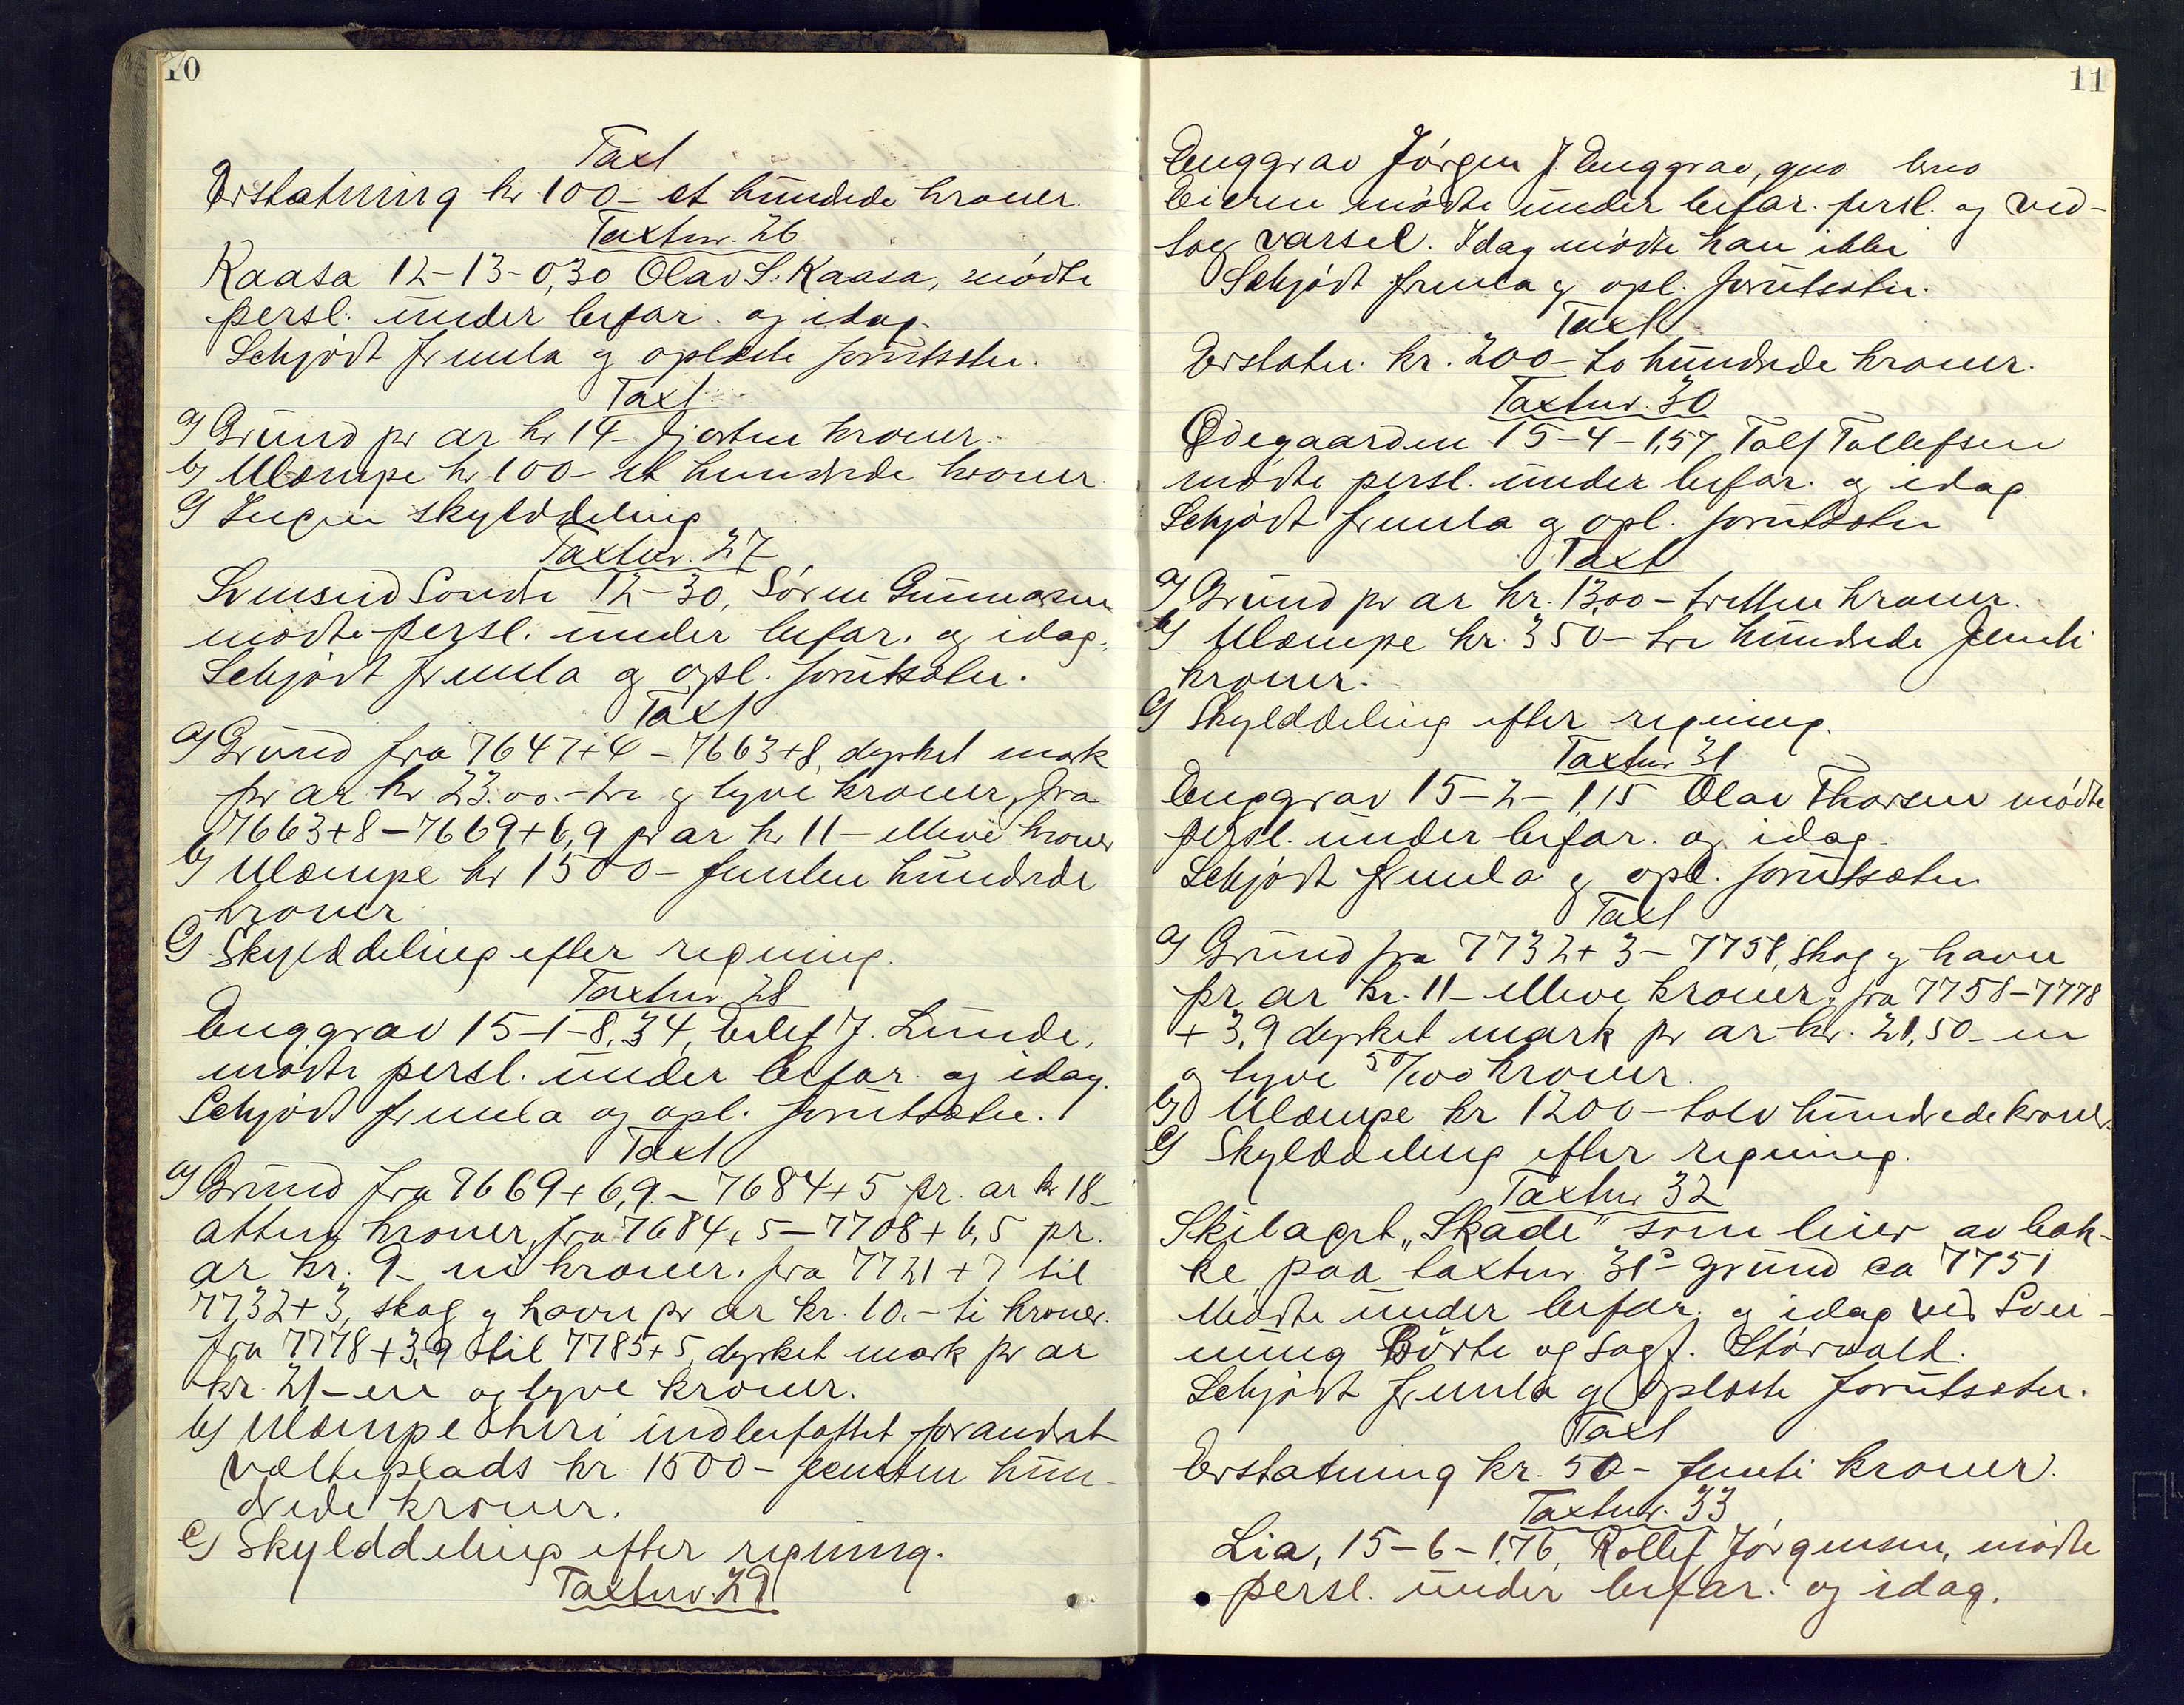 10
Taxt
Erstatning kr 100 - et hundrede kroner.
Taxtnr. 26
Kaasa 12-13-0,30 Olav S. Kaasa, mødte
persl. under befar. og idag.
Schjødt fremla og oplæste forutsetn.
Taxt
a) Grund pr ar kr 14 - fjorten kroner.
b) Ulæmpe kr 100 - et hundrede kroner.
c) Ingen skylddeling
Taxtnr. 27
Svenseid Søndre 12-30, Søren Gunnarsen
mødte persl. under befar. og idag.
Schjødt fremla og opl. forutsetn.
Taxt
a) Grund fra 7647+4 - 7663+8, dyrket mark
pr ar kr 23.00.- tre og tyve kroner, fra
7663+8 - 7669+6,9 pr ar kr 11 - elleve kroner
b) Ulæmpe kr 1500 - femten hundrede
kroner
c) Skylddeling efter regning.
Taxtnr. 28
Enggrav 15-1-8,34, Eilef J. Lunde,
mødte persl. under befar. og idag.
Schjødt fremla og opl. forutsetn.
Taxt
a) Grund fra 7669+6,9 - 7684+5 pr. ar kr 18 -
atten kroner, fra 7684+5 - 7708+6,5 pr.
ar kr. 9 - ni kroner. fra 7721+7 til
7732+3, skog og havn pr ar kr. 10.- ti kroner.
fra 7778+3,9 til 7785+5, dyrket mark pr ar
kr. 21 - en og tyve kroner.
b) Ulæmpe heri indbefattet forandret
velteplads kr 1500 - femten hun-
drede kroner.
c) Skylddeling efter regning.
Taxtnr. 29
11
Enggrav Jørgen J. Enggrav,
Eieren mødte under befar. persl. og ved-
tog varsel. Idag mødte han ikke
Schjødt fremla og opl. forutsetn.
Taxt
Erstatn. kr. 200 - to hundrede kroner.
Taxtnr. 30
Ødegaarden 15-4-1,57, Tolf Tollefsen
mødte persl. under befar. og idag.
Schjødt fremla og opl. forutsetn
Taxt
a) Grund pr ar kr. 13,00 - tretten kroner.
b) Ulæmpe kr. 350 - tre hundrede femti
kroner.
c) Skylddeling efter regning.
Taxtnr 31
Enggrav 15-2-1,15 Olav Thorsen mødte
persl. under befar. og idag.
Schjødt fremla og opl. forutsetn
Taxt
a) Grund fra 7732+3 - 7758, skog og havn
pr ar kr. 11 - elleve kroner, fra 7758-7778
+3,9 dyrket mark pr ar kr. 21,50 - en
og tyve 50/100 kroner.
b) Ulæmpe kr 1200 - tolv hundrede kroner.
c) Skylddeling efter regning.
Taxtnr 32
Skilaget "Skade" som leier av bak-
ke paa taxtnr. 31s grund ca 7751
Mødte under befar. og idag ved Svei-
nung Børte og sagf. Størvold.
Schjødt fremla og oplæste forutsetn.
Taxt
Erstatning kr. 50 - femti kroner.
Taxtnr. 33
Lia, 15-6-1,76, Rollef Jørgensen, mødte
persl. under befar. og idag.